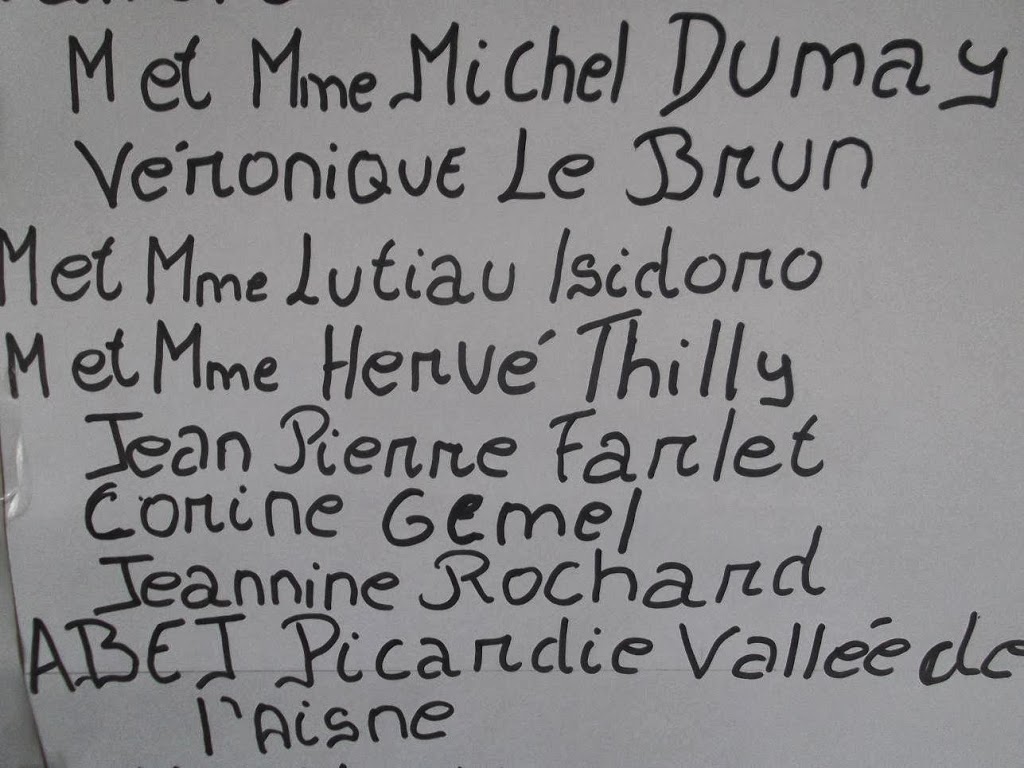 M et Mme Michel Dumay
Véronique Le Brun
M et Mme Lutiau Isidoro
M et Mme Hervé Thilly
Jean Pierre Farlet
Corine Gemel
Jeannine Rochard
ABEJ Picardie Vallée de
l'Aisne